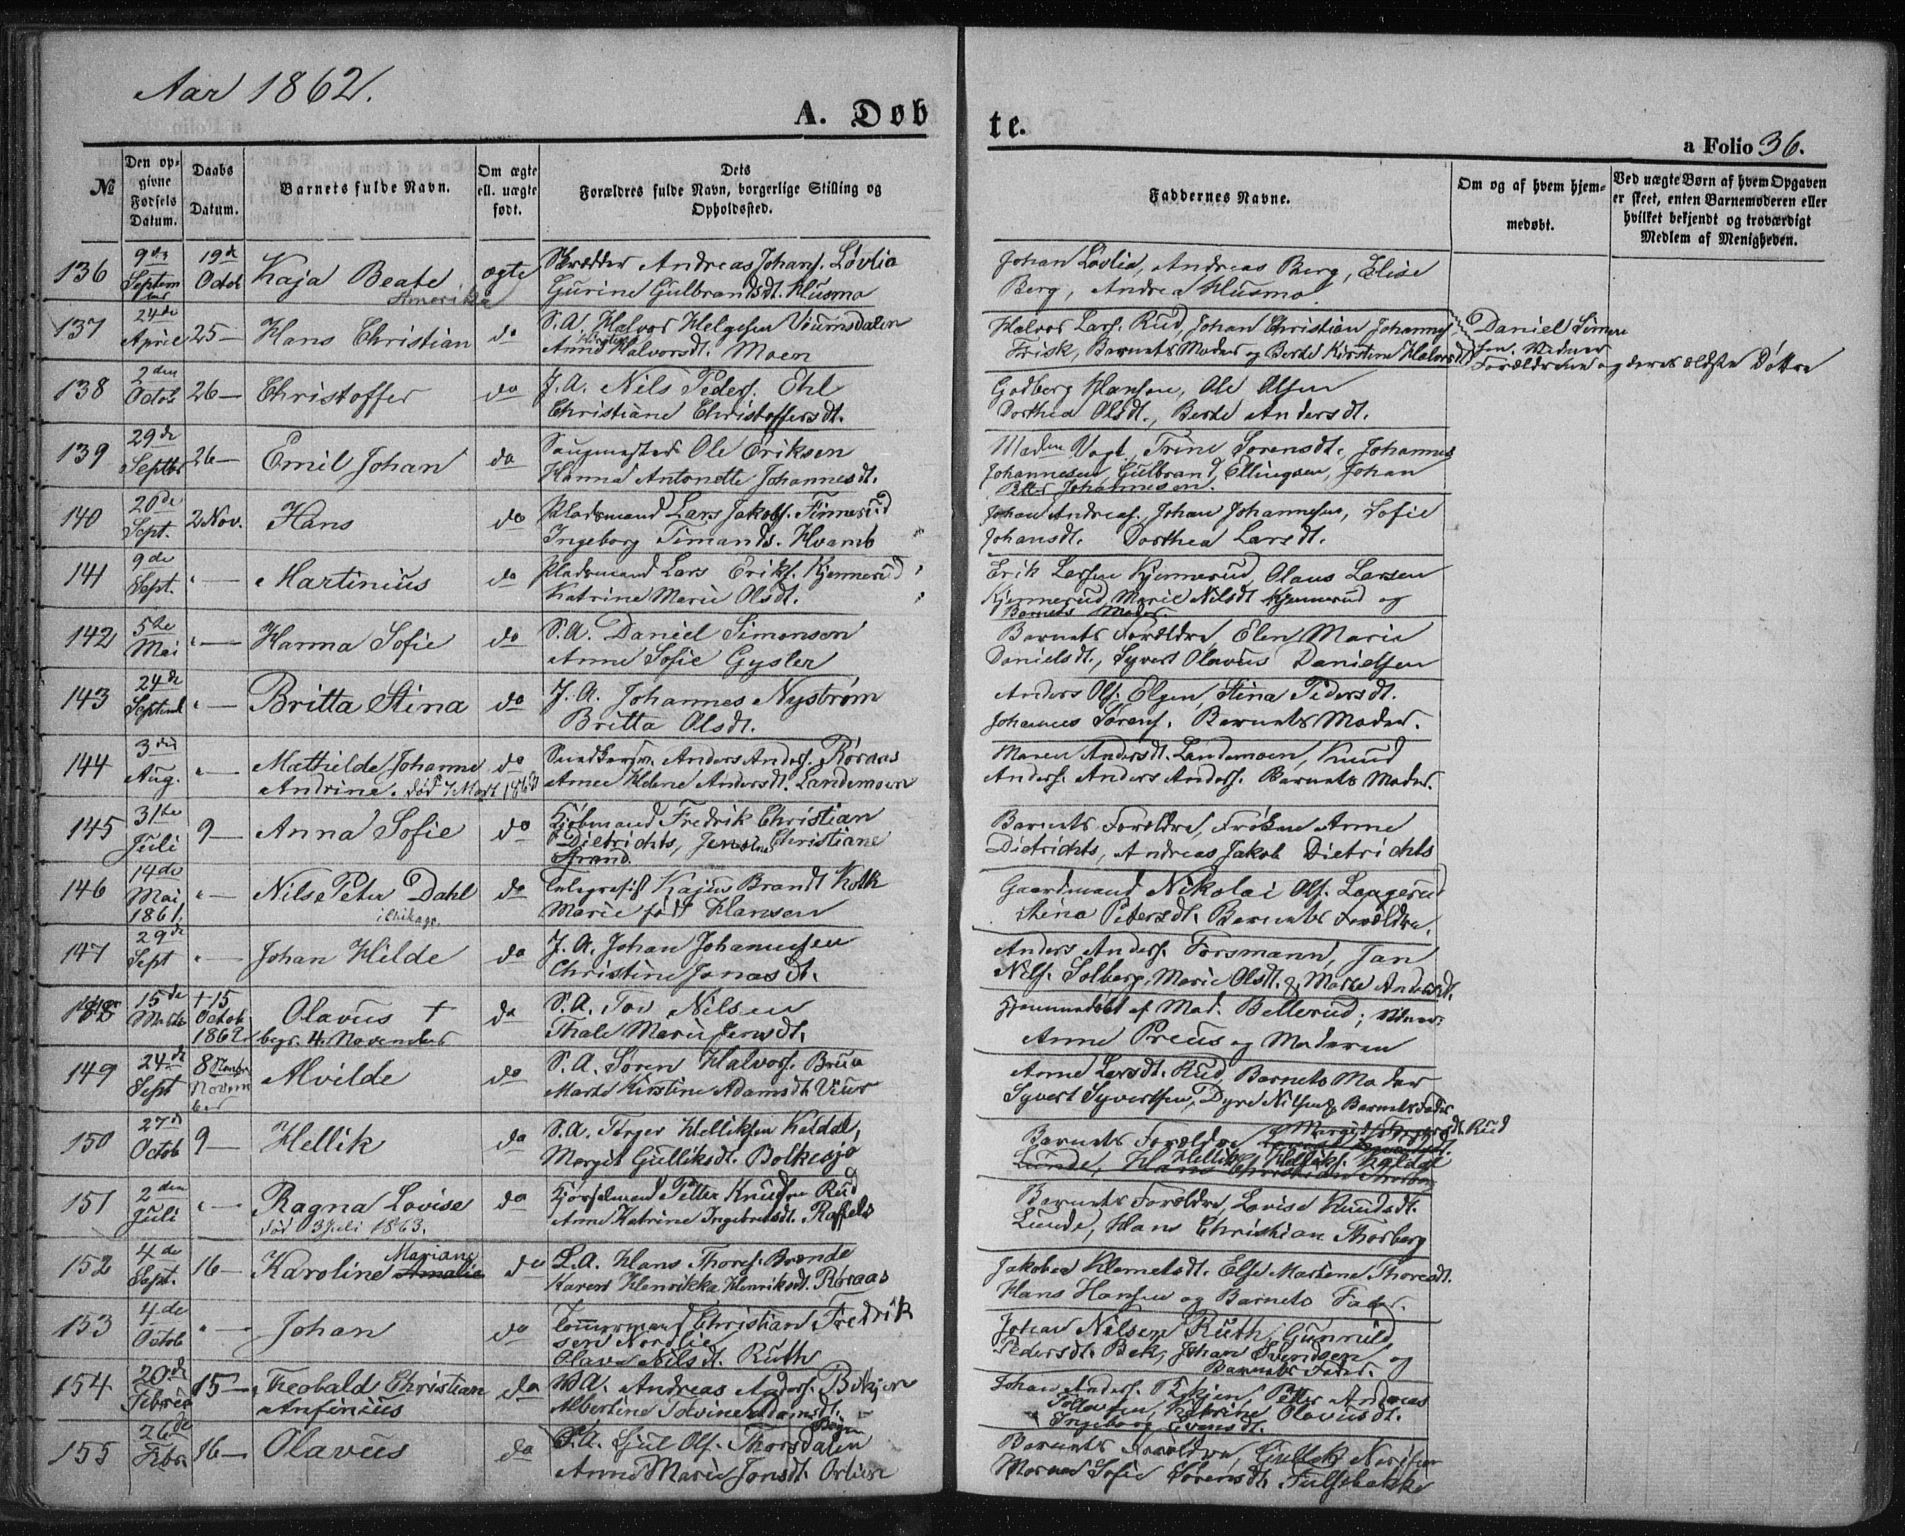 Aar 1862.
A. Døbte.
a Folio 36.
№
Den opgivne Fødsels Datum.
Daabs Datum.
Barnets fulde Navn.
Om ægte ell. uægte født.
Dets Forældres fulde Navn, borgerlige Stilling og Opholdssted.
Faddernes Navne.
Om og af hvem hjemmedøbt.
Ved uægte Børn af hvem Opgaven er skeet, enten Barnemoderen eller hvilket bekjendt og troværdigt Medlem af Menigheden.
136 9de September 19de Octob Kaja Beate ægte Skrædder Andreas Johans. Løvlia
Gurine Gulbrandsdt. Husmo
Johan Løvlia, Andreas Berg, Elise
Berg, Andrea Husmo.
Amerika
137 24de April 25 — Hans Christian do S.A. Halvor Helgesen
Anne Halvorsdt. Moen
Halvor Lars. Rud, Johan Christian Johannes.
Frisk, Barnets Moder og Berte Kirstine Halvorsdt
Daniel Simon
sen. Vidner
Forældrene og deres ældste Dotter
138 2den Octob 26 — Christoffer do J.A. Nils Peders. Ehl
Christiane Christoffersdt.
Godberg Hansen, Ole Olsen
Dorthea Olsdt., Berte Andersdt.
139 29de Septbr 26 — Emil Johan do Saugmester Ole Eriksen
Hanna Antonette Johannesdt.
Madm Vogt, Trine Sorensdt., Johannes
Johannesen, Gulbrand Ellingsen, Johan
Petter Johannesen.
140 20de Sept. 2 Nov. Hans do Pladsmand Lars Jakobs. Finnerud
Ingeborg Timandsd. Hvamb
Johan Andreas. Johan Johannesen, Sofie
Johansdt. Dorthea Larsdt.
141 9de Sept. " — Martinius do Pladsmand Lars Eriks. Kjennerud
Katrine Marie Olsdt.
Erik Larsen Kjennerud, Olaus Larsen
Kjennerud, Marie Nilsdt Kjennerud og
Barnets Moder.
142 5te Mai " — Hanna Sofie do S.A. Daniel Simonsen
Anne Sofie Gysler
Barnets Forældre, Elen Marie
Danielsdt., Syvert Olavus Danielsen
143 24de Septemb " — Britta Stina do J.A. Johannes Nystrøm
Britta Olsdt.
Anders Ols. Elgen, Stina Pedersdt.
Johannes Sørens. Barnets Moder.
144 3die Aug. " — Mathilde Johanne do Anders Anders. Røraas
Andrine. død 7 Mart 186
Anne Helene Andersdt. Landemoen
Maren Andersdt. Landemoen, Knud
Anders. Anders Anders. Barnets Moder.
145 31te Juli 9 — Anna Sofie do Kjøbmand Fredrik Christian
Dietrichts, Christiane
Strand
Barnets Forældre, Frøken Anne
Dietrichts, Andreas Jakob Dietrichts
146 14de Mai 1861. " — Nils Peter Dahl do Telegrafist Kajus Brandt Kolk
i Chikago.
Marie født Hansen
Gaardmand Nikolai Ols. Laagerud
Stina Petersdt. Barnets Forældre.
147 29de Sept " — Johan Hilde do J.A. Johan Johannesen
Christine Jonasdt.
Anders Anders. Forsmann, Jan
Nils. Solberg, Marie Olsdt. & Marte Andersdt.
148 15de † 15 Octob 1862 Olavus † do S.A. Tov Nilsen
begr. 4 November
Thale Marie Jensdt.
Hjemmedøbt af Mad. Bellerud; Vidner
Anne Preus og Moderen
149 24de Sept 8 November Alvilde do S.A. Søren Halvors. Brua
Marte Kirstine Adamsdt. Viur
Anne Larsdt. Rud, Barnets Moder
Syvert Syvertsen, Dyre Nilsen & Barnets Fader
150 27de Octob 9 — Hellik do S.A. Torger Helliksen Kaldal,
Margit Gulliksdt. Bolkesjø
Barnets Forældre, Margit Rud
Lunde, Hans Christian Thorberg Hellik Helliks. Kaldal
151 2den Juli " — Ragna Lovise do Kjørselmand Petter Knudsen Rud
død 3 Juli 1863.
Anne Katrine Ingebretsdt. Raffels
Barnets Forældre, Lovise Knudsdt.
Lunde, Hans Christian Thorberg
152 4de Sept. 16 — Karoline Amalie Mariane do S.A. Hans Thores. Brænde
Karen Henrikka Henriksdt. Røraas
Jakobea Klemetsdt. Else Martine Thoresdt.
Hans Hansen og Barnets Fader.
153 4de Octob " — Johan do Tømmermand Christian Fredrik
sen Nordlie
Olava Nilsdt. Ruth
Johan Nilsen Ruth, Gunnild
Pedersdt. Bek, Johan Svendsen og
Barnets Fader.
154 20de Februar 15 — Theobald Christian do V.A. Andreas Anders. Bøkjen
Anfinius
Albertine Tovine Adamsdt.
Johan Anders. Bøkjen, Petter Andreas
Tollovsen, Katrine Olavusdt.
Ingeborg Evensdt.
155 26de Febr 16 — Olavus do S.A. Gjul Ols. Thorsdalen
Anne Marie Jonsdt.
Barnets Forældre, Gullek
Maren Sofie Sørensdt. Tufsebakke